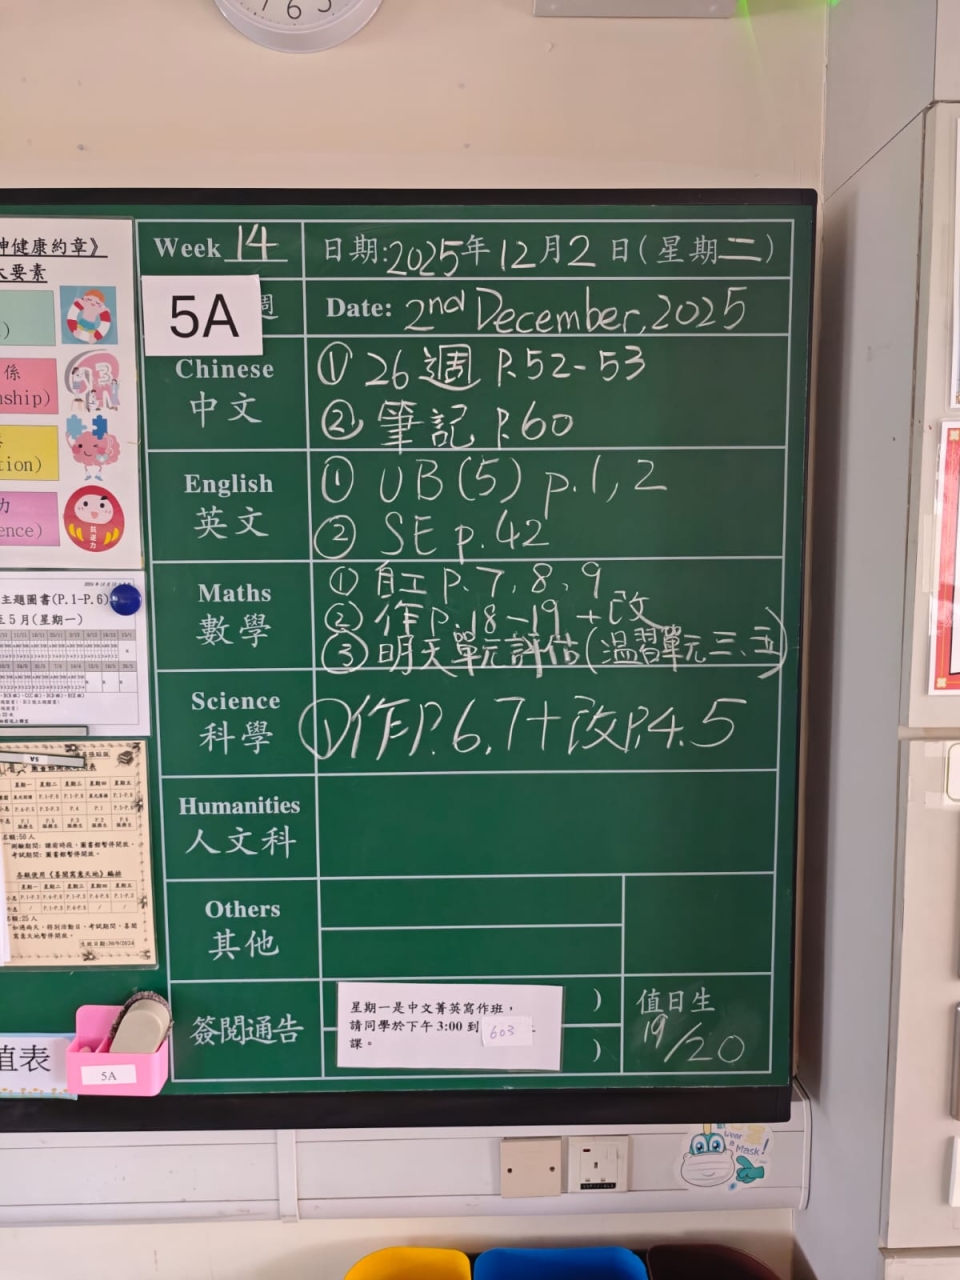 Week 14
日期:2025年12月2日(星期二)
5A
週
Date: 2nd December, 2025
Chinese
中文
① 26週 P.52-53
② 筆記 P.60
English
英文
① UB(5) p.1, 2
② SE p.42
Maths
數學
① 自工 P.7, 8, 9
② 作P.18-19 + 改
③ 明天單元評估(溫習單元三、五)
Science
科學
① 作P.6, 7+改P.4, 5
Humanities
人文科
Others
其他
簽閱通告
星期一是中文菁英寫作班,
請同學於下午 3:00 到 603
課。
)
)
值日生
19/20
神健康約章》
大要素
係
nship)
tion)
力
ence)
主題圖書(P.1-P.6)
5月(星期一)
值表
5A
Mask!